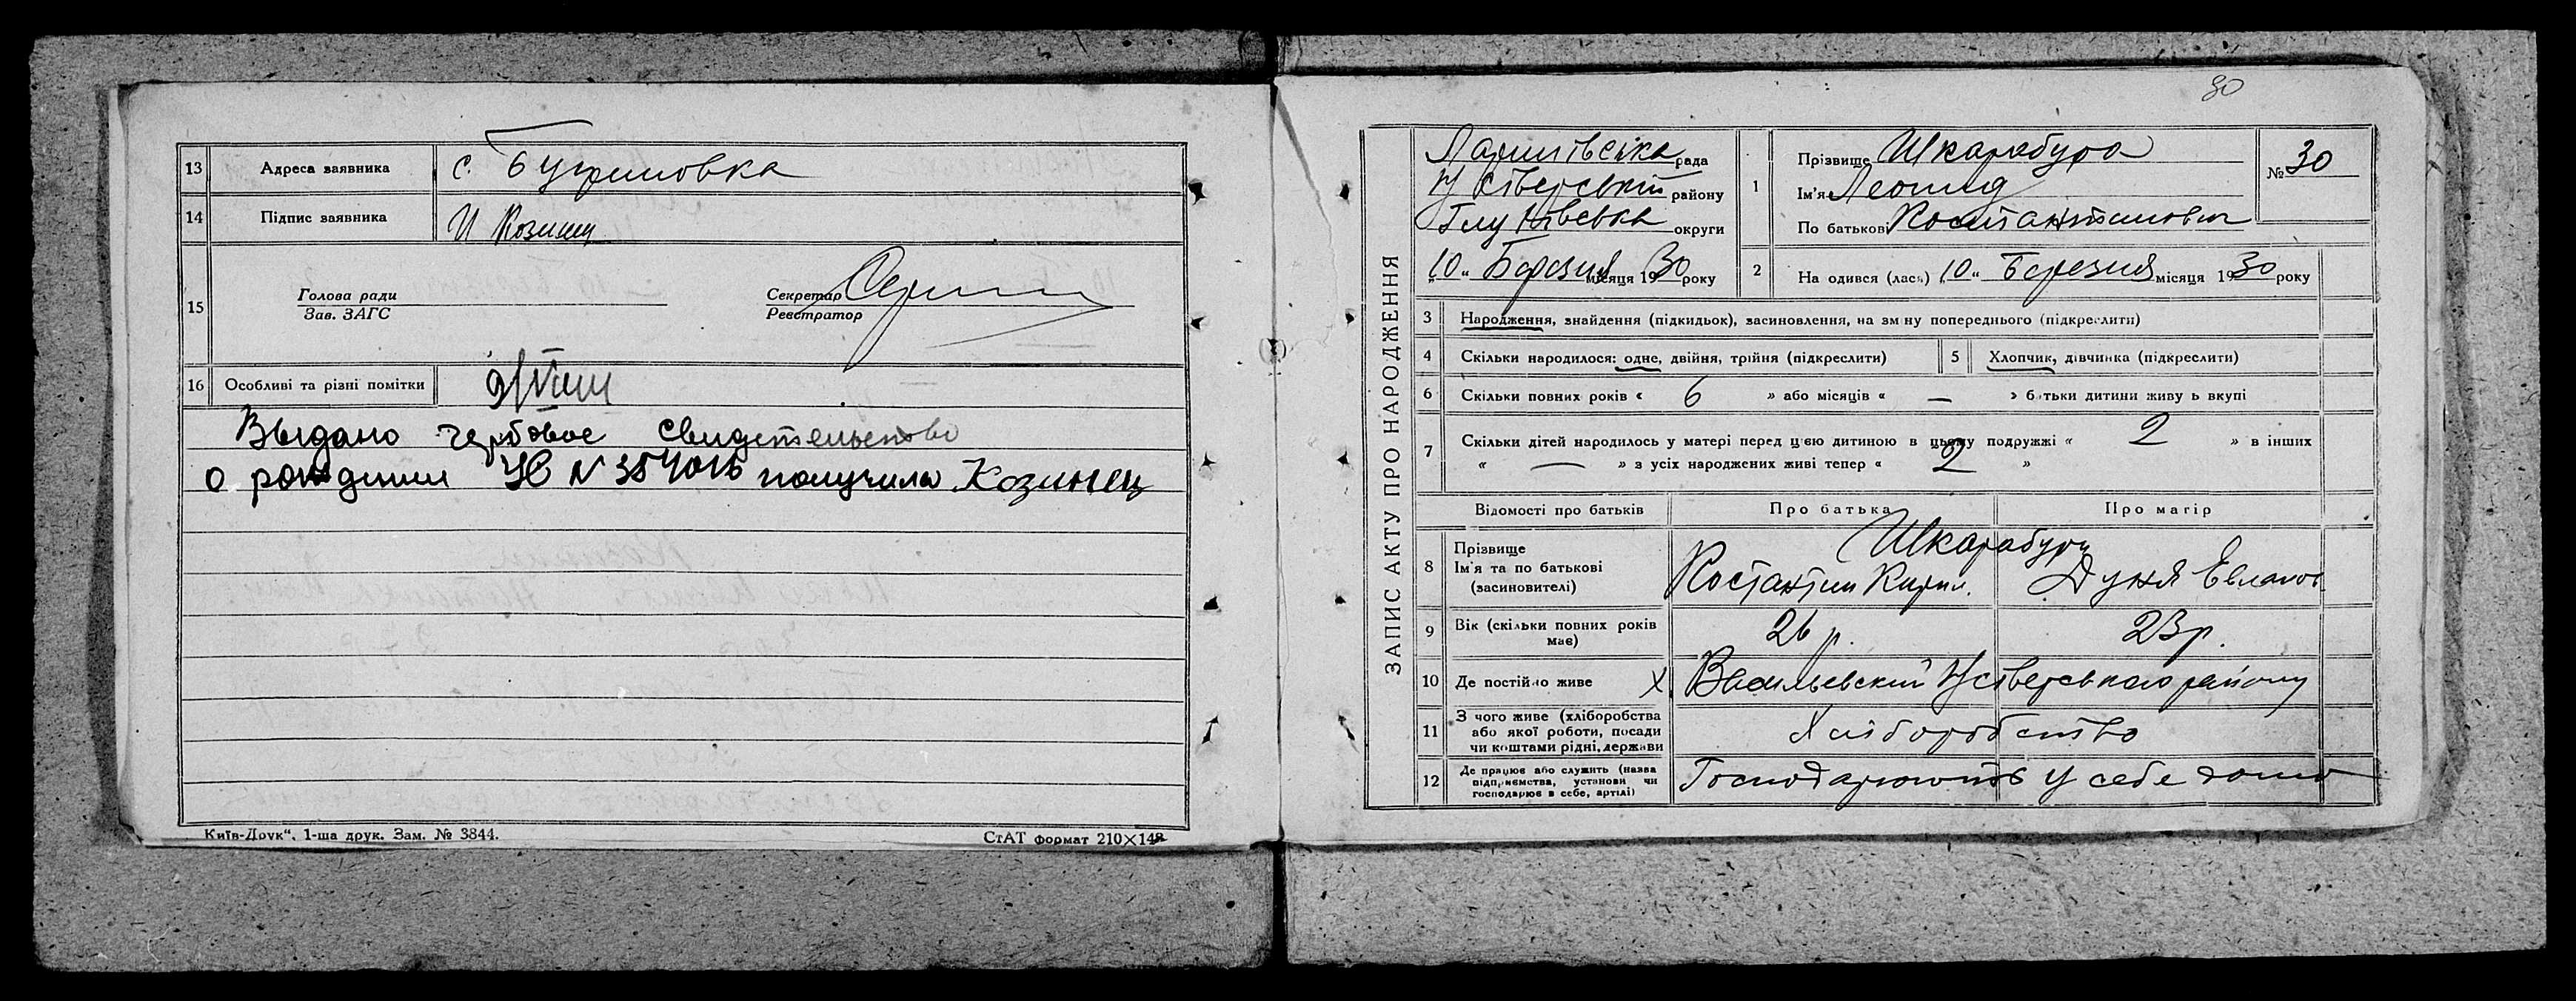 13 Адреса заявника с.
14 Підпис заявника И
15 Голова ради Секретар
Зав. ЗАГС Реєстратор
16 Особливі та різні помітки
Выдано гербовое свидетельство
о рождении № получила Козинец
Київ-Друк“. 1-ша друк. Зам. № 3844.
СтАТ формат 210×148
30
ЗАПИС АКТУ ПРО НАРОДЖЕННЯ
рада
району
округи
„10“ Березня місяця 1930 року
1 Прізвище Шкарабура
Ім'я Леонид
По батькові Костантинович
№ 30
2 На одився (лась) „10“ Березня місяця 1930 року
3 Народження, знайдення (підкидьок), засиновлення, на зм ну попереднього (підкреслити)
4 Скільки народилося: одне, двійня, трійня (підкреслити) 5 Хлопчик, дівчинка (підкреслити)
6 Скільки повних років « 6 » або місяців « — » батьки дитини живу ь вкупі
7 Скільки дітей народилось у матері перед цією дитиною в цьому подружжі « 2 » в інших
« — » з усіх народжених живі тепер « 2 »
Відомості про батьків Про батька Про матір
8 Прізвище
Ім'я та по батькові
(засиновителі)
Шкарабура
Костантин Кирил. Дуня
9 Вік (скільки повних років
має)
26 р. 23 р.
10 Де постійно живе х.
району
11 З чого живе (хліборобства
або якої роботи, посади
чи коштами рідні, держави
Хліборобство
12 Де працює або служить (назва
підприємства, установи чи
господарює в себе, артілі)
Господарюють у себе дома